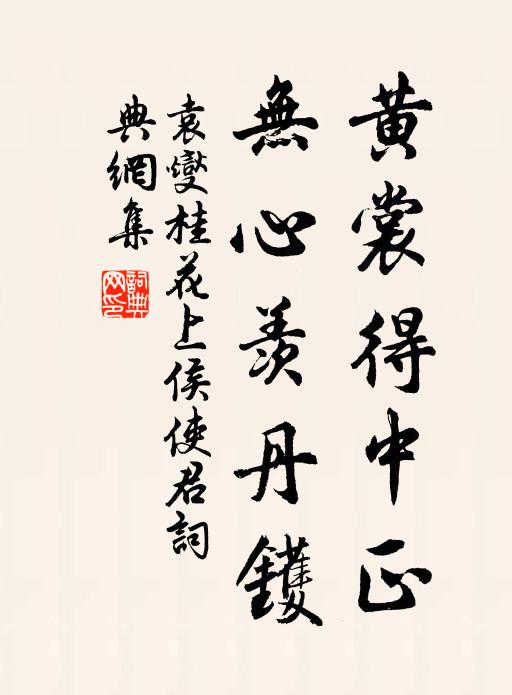 黃裳得中正
無心羨丹鑊
袁燮桂花上侯使君詞
典網集
詞典網印